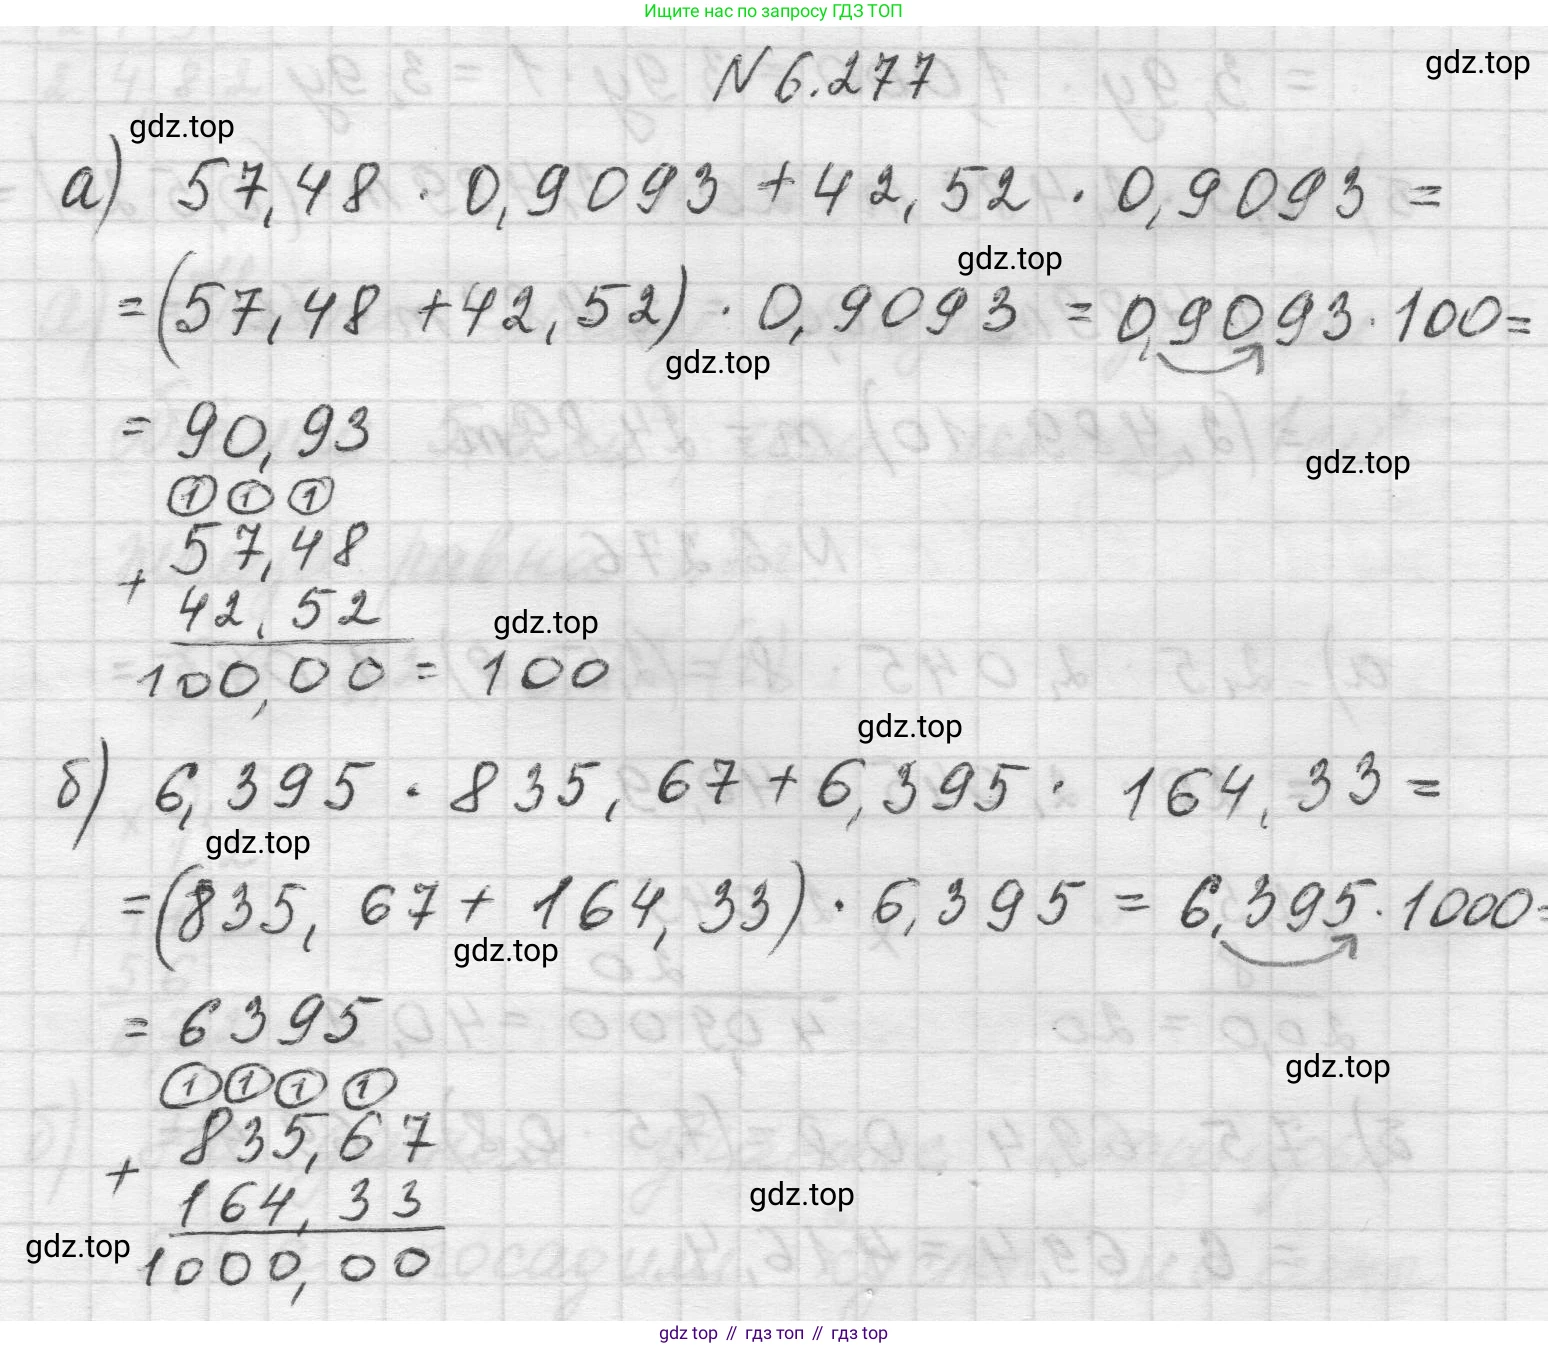 Ищите нас по запросу ГДЗ ТОП
N 6.277
gdz.top
gdz.top
а) 57,48 · 0,9093 + 42,52 · 0,9093 =
gdz.top
= (57,48 + 42,52) · 0,9093 = 0,9093 · 100 =
gdz.top
= 90,93
gdz.top
1 1 1
57,48
+
42,52
gdz.top
100,00 = 100
gdz.top
б) 6,395 · 835,67 + 6,395 · 164,33 =
gdz.top
= (835,67 + 164,33) · 6,395 = 6,395 · 1000 =
gdz.top
= 6395
gdz.top
1 1 1 1
835,67
+
164,33
gdz.top
gdz.top
1000,00
gdz top // гдз топ // gdz top